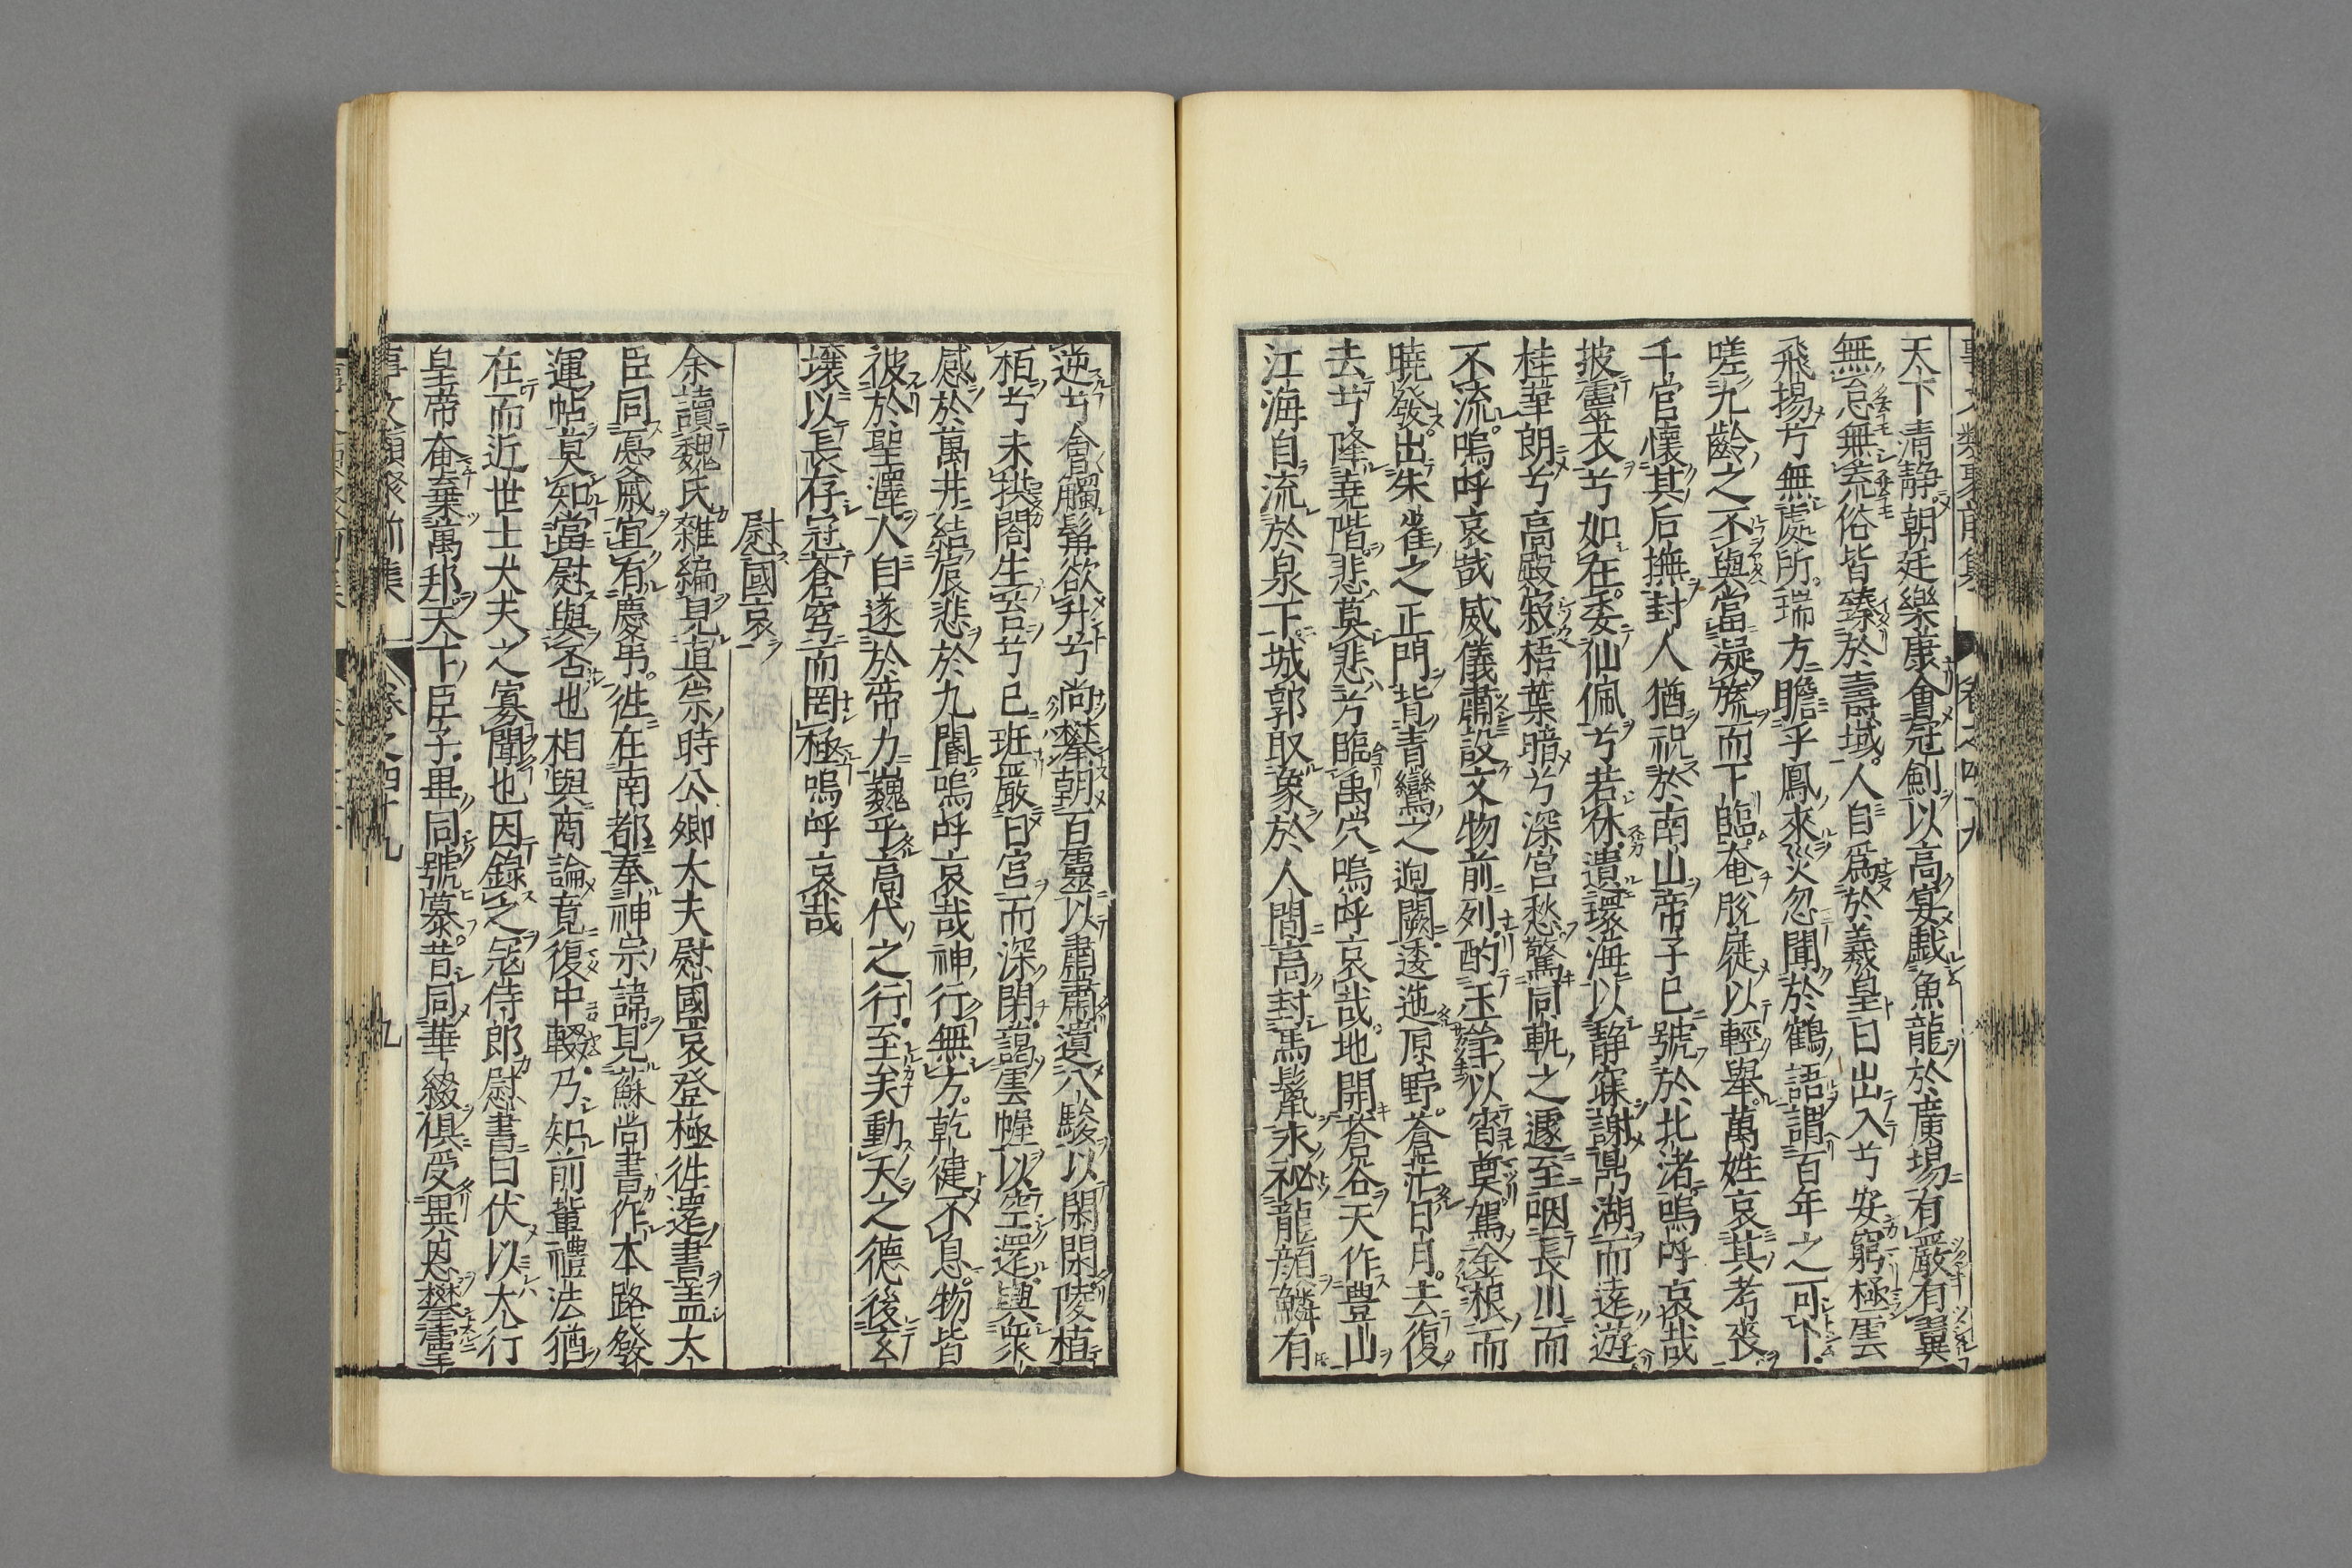 天下清静朝廷樂康會冠劍以高宴戯魚龍於廣場有嚴有翼
無怠無荒俗皆臻於壽域人自爲於羲皇日出入兮安窮極雲
飛揚兮無處所瑞方瞻乎鳳來災忽聞於鶴語謂百年之可卜
嗟九齡之不與當凝旒而下臨奄脫屣以輕舉萬姓哀其考喪
千官懷其后撫封人猶祝於南山帝子已號於北渚嗚呼哀哉
披靈衣兮如在委仙佩兮若休遺環海以静寐謝鼎湖而遠遊
桂華朗兮高殿寂梧葉暗兮深宮愁驚同軌之遽至咽長川而
不流嗚呼哀哉威儀肅設文物前列酌玉斝以宵奠駕金根而
曉發出朱雀之正門背青鸞之迥闕逶迤原野蒼茫日月去復
去兮降堯階悲莫悲兮臨禹穴嗚呼哀哉地開蒼谷天作豊山
江海自流於泉下城郭取象於人間高封馬鬛永祕龍顔鱗有
逆兮會觸髯欲升兮尚攀朝百靈以肅肅遺八駿以閑閑陵植
栢兮未拱閤生苔兮已班嚴日宮而深閉藹雲幄以空還輿衆
感於萬井結宸悲於九閽嗚呼哀哉神行無方乾健不息物皆
彼於聖澤人自遂於帝力巍乎高代之行至矣動天之德後玄
壤以長存冠蒼穹而罔極嗚呼哀哉
慰國哀
余讀魏氏雜編見真宗時公卿大夫慰國哀登極徃還書蓋大
臣同憂戚宜有慶弔徃在南都奉神宗諱見蘇尚書作本路發
運帖莫知當慰與否也相與商論竟復中輟乃知前輩禮法猶
在而近世士犬夫之寡聞也因錄之寇侍郎慰書曰伏以大行
皇帝奄棄萬邦天下臣子畢同號慕昔同華綴俱受異恩攀靈
事文類聚前集 卷之四十九 九